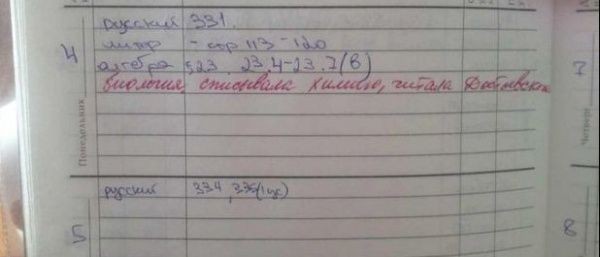 4
Понедельник
русский 331.
литер - стр 113-120
алгебра §23 23.4-23.7(в)
Биология списывала химию, читала Достоевского
5
русский 334, 335(1 ус)
7
Четверг
8